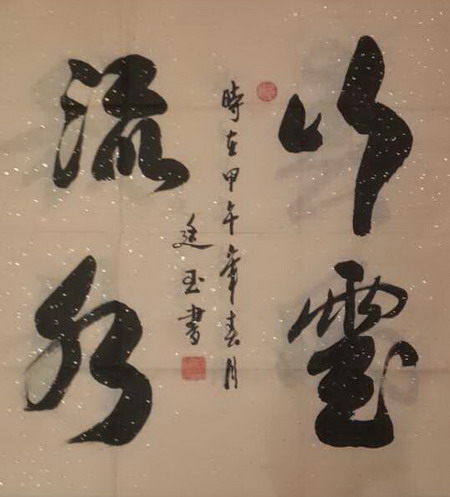 行雲
流水
時在甲午年春月
廷玉書